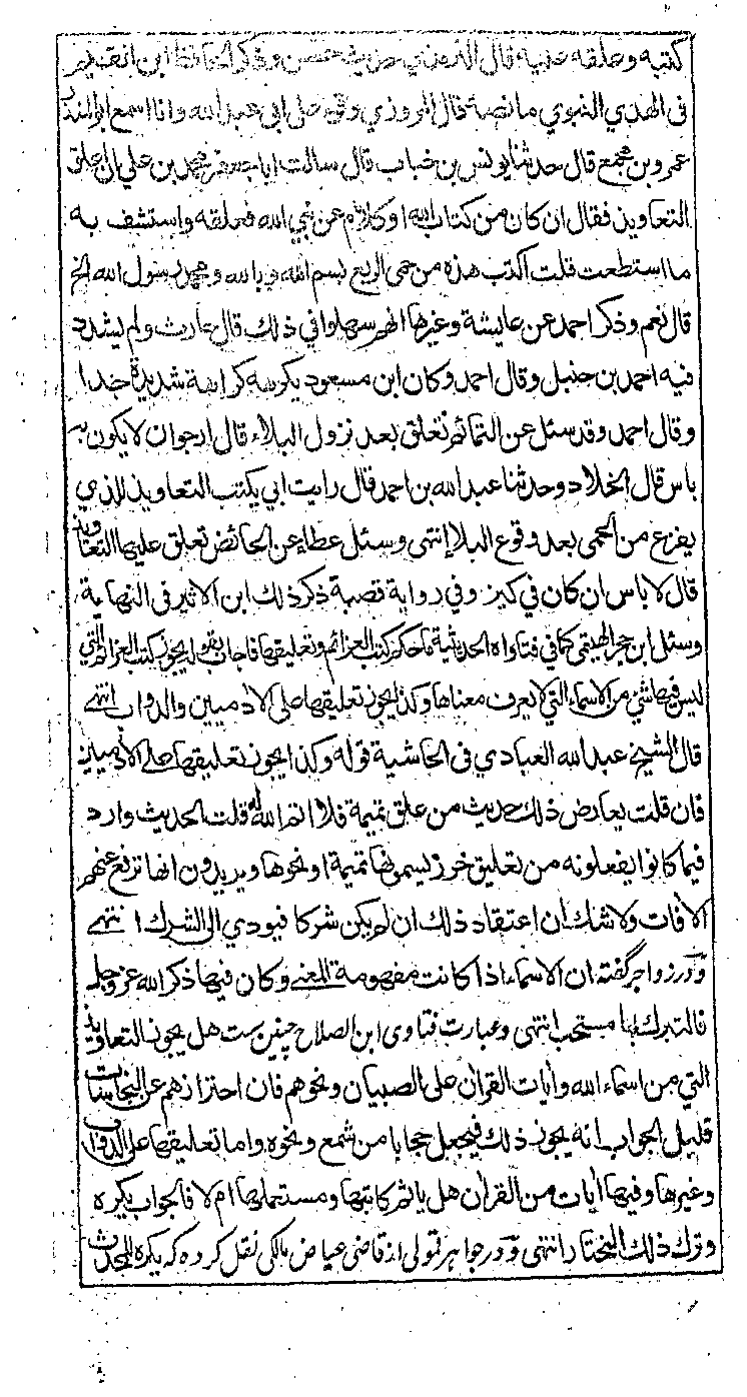 كتبه وعلقه عليه قال الترمذي حديث حسن وذكر الحافظ ابن القيم
فى الهدي النبوي ما نصه قال المروزي وقرئ على ابى عبد الله وانا اسمع ابو المنذر
عمرو بن مجمع قال حدثنا يونس بن خباب قال سالت ابا جعفر محمد بن علي ان اعلق
التعاويذ فقال ان كان من كتاب الله او كلام عن نبي الله فعلقه واستشف به
ما استطعت قلت اكتب هذه من حمى الربع بسم الله وبالله ومحمد رسول الله الخ
قال نعم وذكر احمد عن عايشة وغيرها انهم سهلوا في ذلك قال حارث ولم يشدد
فيه احمد بن حنبل وقال احمد وكان ابن مسعود يكرهه كراهة شديدة جدا
وقال احمد وقد سئل عن التمائم تعلق بعد نزول البلاء قال ارجو ان لا يكون به
باس قال الخلاد وحدثنا عبد الله بن احمد قال رايت ابي يكتب التعاويذ للذي
يفزع من الحمى بعد وقوع البلا إنتهى وسئل عطاء عن الحائض تعلق عليها التعاويذ
قال لا باس ان كان في كيز وفي رواية قصبة ذكر ذلك ابن الاثير فى النهاية
وسئل ابن حجر الهيتمى كما في فتاواه الحديثية ما حكم كتب العزائم وتعليقها فاجاب بقوله يجوز كتب العزائم التي
ليس فيها شئ من الاسماء التي لا يعرف معناها وكذا يجوز تعليقها على الادميين والدواب انتهى
قال الشيخ عبد الله العبادي فى الحاشية قوله وكذا يجوز تعليقها على الأدميين
فان قلت يعارض ذلك حديث من علق تميمة فلا اتم الله له قلت الحديث وارد
فيما كانوا يفعلونه من تعليق خرز يسمونها تميمة او نحوها ويريدون انها ترفع عنهم
الافات ولا شك ان اعتقاد ذلك ان لم يكن شركا فيودي الى الشرك انتهى
ودر زواجر گفته ان الاسماء اذا كانت مفهومة المعنى وكان فيها ذكر الله عز وجل
فالتبرك بها مستحب انتهى وعبارت فتاوى ابن الصلاح چنين ست هل يجوز التعاويذ
التي من اسماء الله وأيات القرأن على الصبيان ونحوهم فان احترازهم عن النجاسات
قليل الجواب انه يجوز ذلك فيجعل حجابا من شمع ونحوه واما تعليقها على الدواب
وغيرها وفيها أيات من القرأن هل ياثم كاتبها ومستعملها ام لا فالجواب يكره
وترك ذلك المختار انتهى ودر جواهر قمولى از قاضى عياض مالكى نقل كرده كه يكره للمحدث